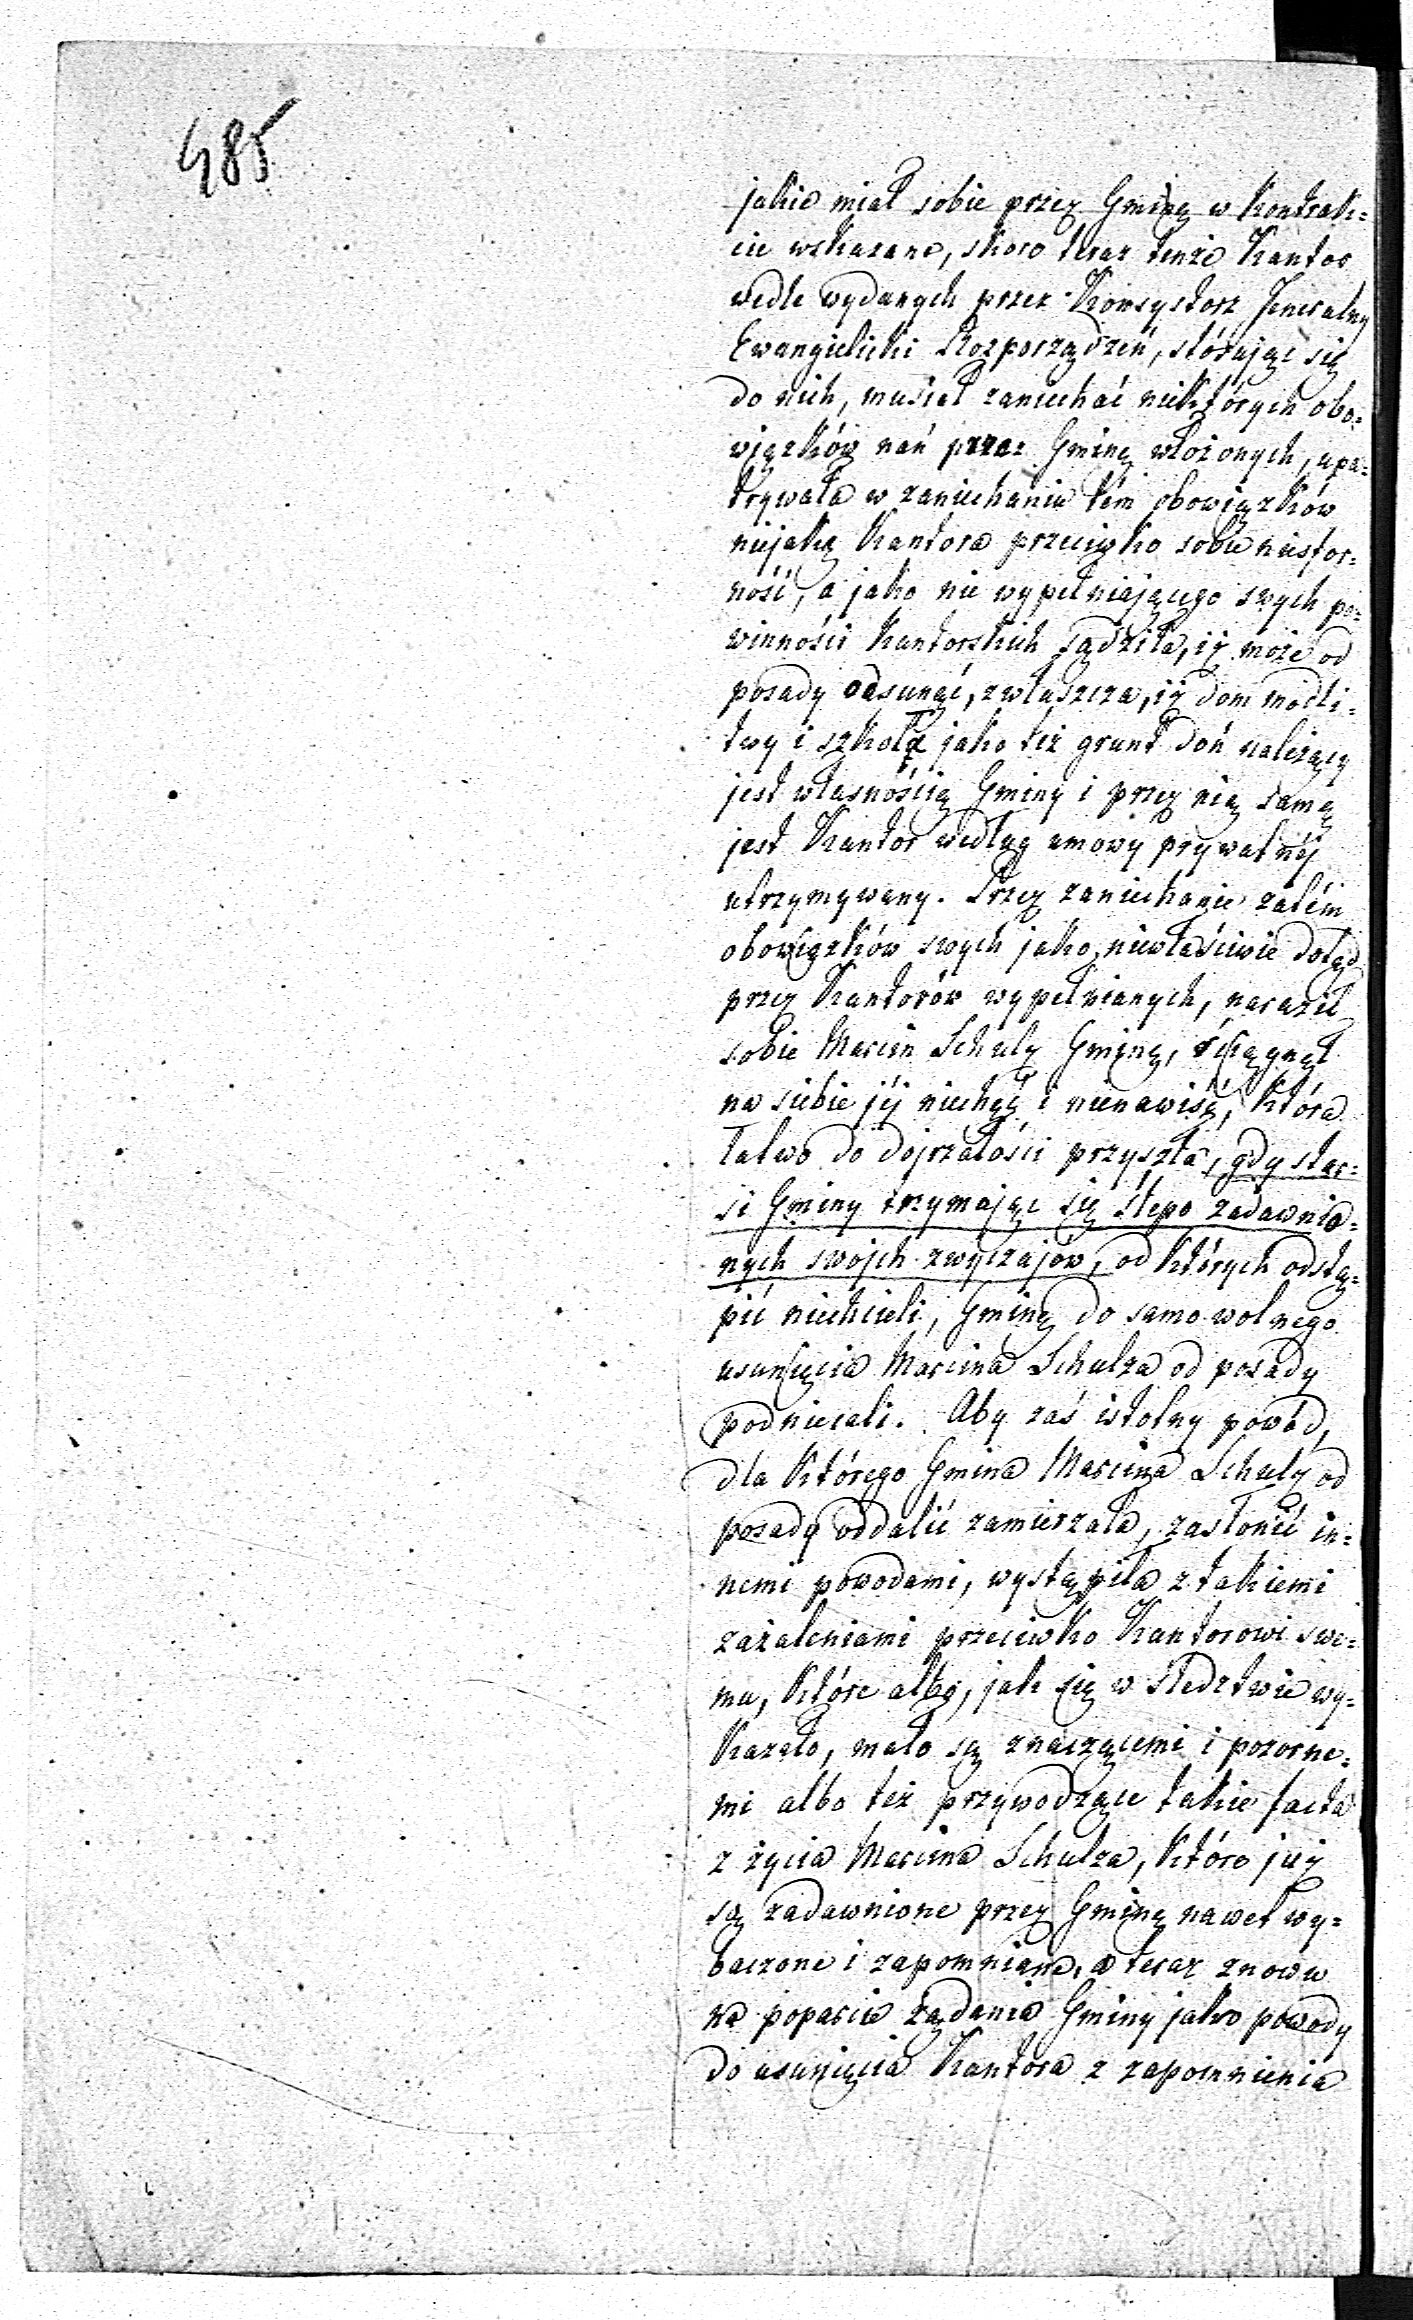 485
jakie miał sobie przez Gminę w kontrak=
cie wskazane, skoro teraz tenże Kantor
wedle wydanych przez Konsystorz Jeneralny
Ewangielicki Rozporządzeń, stósując się
do nich, musiał zaniechać niektórych obo=
wiązków nań przez Gminę włożonych, upa=
trywała w zaniechaniu tém obowiązków
niejaką Kantora przeciwko sobie niesfor=
ność, a jako nie wypełniającego swych po=
winności Kantorskich sądziła, iż może od
posady odsunąć, zwłaszcza, iż dom modli=
twy i szkoła jako też grunt doń należący
jest własnością Gminy i przez nią samą
jest Kantor według umowy prywatnéj
utrzymywany. Przez zaniechanie zatém
obowiązków swych jako niewłaściwie dotąd
przez Kantorów wypełnianych, naraził
sobie Marcin Schulz Gminę, ściągnął
na siebie jéj niechęć i nienawiść, która
łatwo do dojrzałości przyszła, gdy star=
si Gminy trzymając się ślepo zadawnio=
nych swojch zwyczajów, od których odstą=
pić niechcieli, Gminę do samowolnego
usunięcia Marcina Schulza od posady
podniecali. Aby zaś istotny powód,
dla którego Gmina Marcina Schulz od
posady oddalić zamierzała, zasłonić in=
nemi powodami, wystąpiła z takiemi
zażaleniami przeciwko Kantorowi swe=
mu, które albo, jak się w śledztwie wy=
kazało, mało są znaczącemi i pozorne=
mi albo też przywodzące takie facta
z życia Marcina Schulza, które już
są zadawnione przez Gminę nawet wy=
baczone i zapomniane, a teraz znowu
na poparcie żądania Gminy jako powody
do usunięcia Kantora z zapomnienia